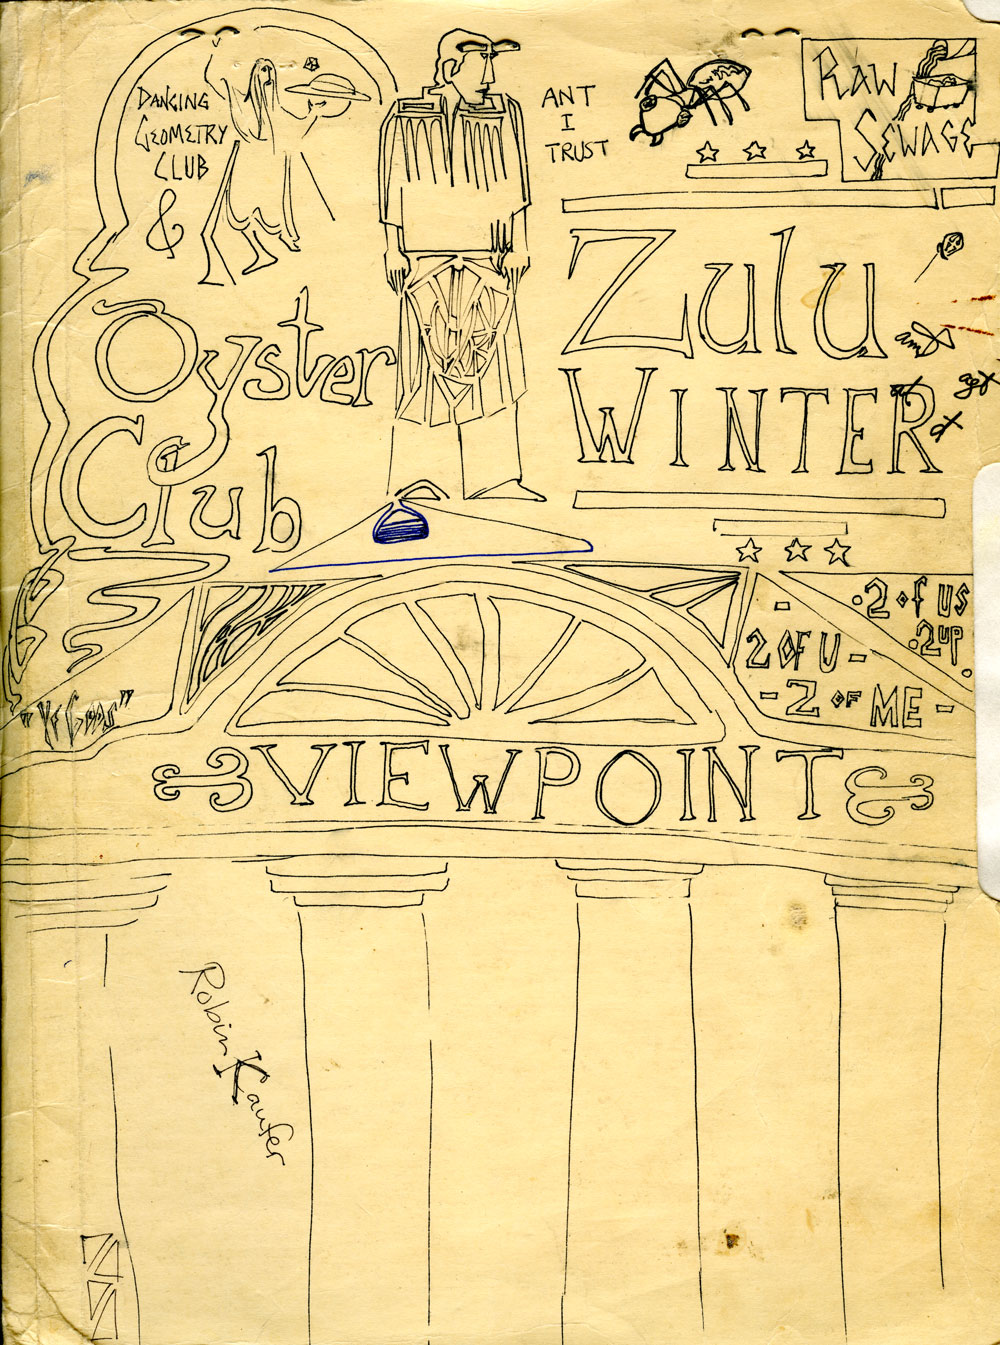 DANCING
GEOMETRY
CLUB
&
Oyster
Club
ANT
I
TRUST
RAW
SEWAGE
Zulu
WINTER
2 of US
2UP
2 OF U -
- 2 OF ME -
"YE GODS"
VIEWPOINT
Robin Kaufer